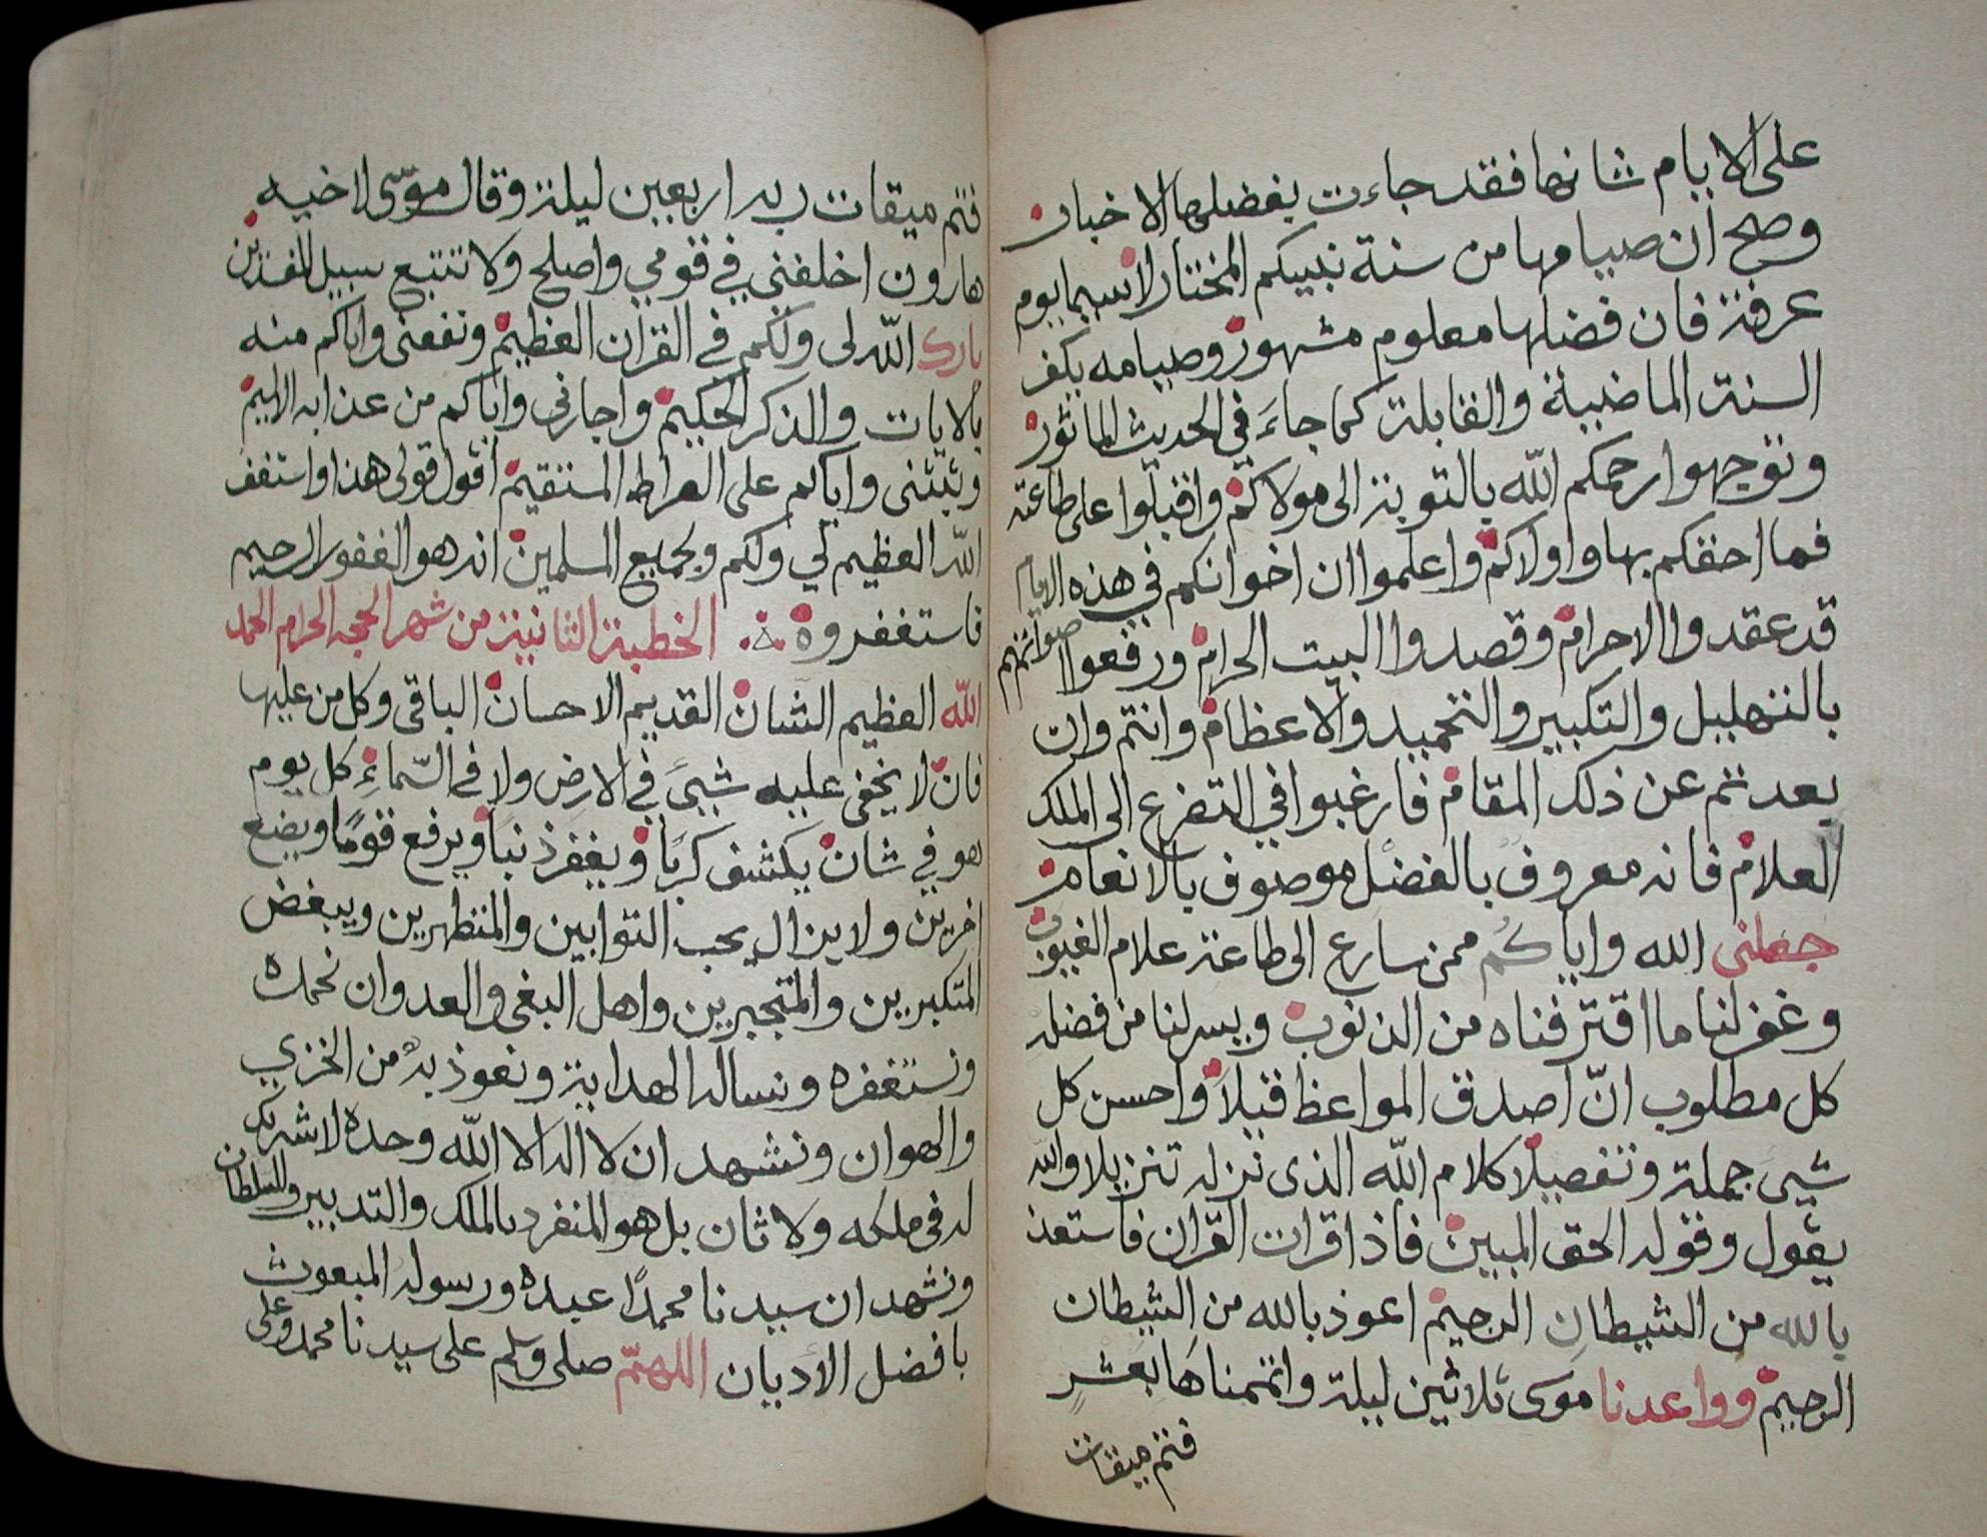 على الايام شانها فقد جاءت بفضلها الاخبار
وصح ان صيامها من سنة نبيكم المختار لاسيما يوم
عرفة فان فضلها معلوم مشهور وصيامه يكفر
السنة الماضية والقابلة كما جاءَ في الحديث الماثور
وتوجهوا رحمكم الله بالتوبة الى مولاكم واقبلوا على طاعته
فما احقكم بها واولاكم واعلموا ان اخوانكم في هذه الايام
قد عقدوا الاحرام وقصدوا البيت الحرام ورفعوا اصواتهم
بالتهليل والتكبير والتحميد والاعظام وانتم وان
بعدتم عن ذلك المقام فارغبوا في التضرع الى الملك
العلام فانه معروف بالفضل موصوف بالانعام
جعلنى الله واياكم ممن سارع الى طاعة علام الغيوب
وغفر لنا ما اقترفناه من الذنوب ويسر لنا من فضله
كل مطلوب انّ اصدق المواعظ قيلاً واحسن كل
شيىَ جملة وتفصيلا كلام الله الذى نزله تنزيلا والله
يقول وقوله الحق المبين فاذا قرات القران فاستعذ
بالله من الشيطان الرجيم اعوذ بالله من الشيطان
الرجيم وواعدنا موسى ثلاثين ليلة واتممناها بعشرٍ
فتم ميقات
فتم ميقات ربه اربعين ليلة وقال موسى لاخيه
هارون اخلفني في قومي واصلح ولا تتبع سبيل المفسدين
بارك الله لى ولكم في القران العظيم ونفعنى واياكم منه
بالايات والذكر الحكيم واجارنى واياكم من عذابه الاليم
وثبتنى واياكم على الصراط المستقيم اقول قولى هذا واستغفر
الله العظيم لي ولكم ولجميع المسلمين انه هو الغفور الرحيم
فاستغفروه الخطبة الثانية من شهر الحجه الحرام الحمد
الله العظيم الشان القديم الاحسان الباقى وكل من عليها
فان لا يخفى عليه شيىَ في الارض ولا في السّماءِ كل يوم
هو في شان يكشف كربًا ويغفر ذنبًا ويرفع قومًا ويضع
اخرين ولا يزال يحب التوابين والمتطهرين ويبغض
المتكبرين والمتجبرين واهل البغى والعدوان نحمده
ونستغفره ونساله الهداية ونعوذ به من الخزي
والهوان ونشهد ان لا اله الا الله وحده لا شريك
له فى ملكه ولا ثان بل هو المنفرد بالملك والتدبير والسلطان
ونشهد ان سيدنا محمدًا عبده ورسوله المبعوث
بافضل الاديان اللهمّ صلى وسلم على سيدنا محمد وعلى